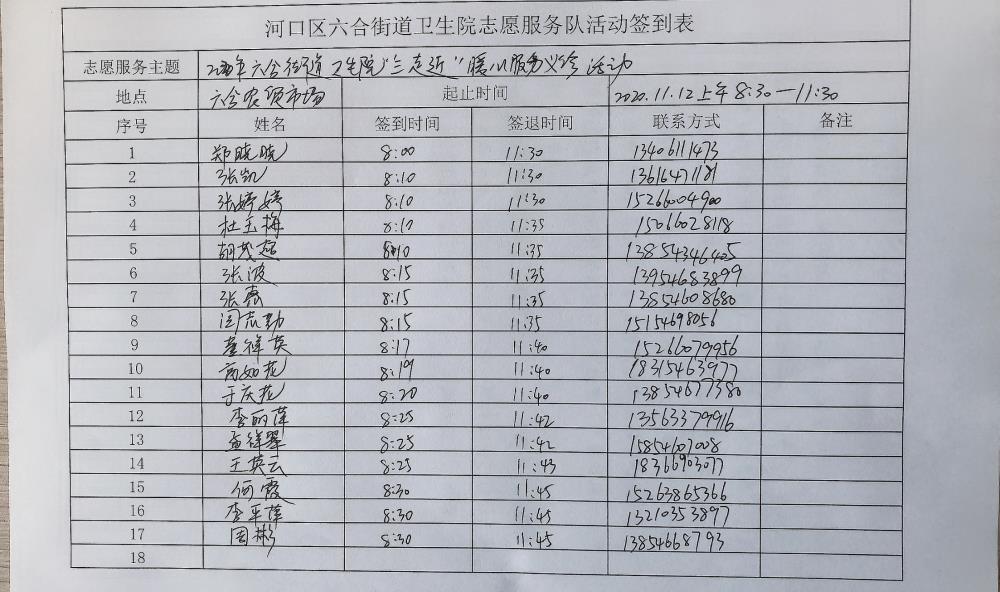 河口区六合街道卫生院志愿服务队活动签到表
志愿服务主题 2020年六合街道卫生院"三走近"暖心服务义诊活动
地点 六合农贸市场 起止时间 2020.11.12上午8:30—11:30
序号 姓名 签到时间 签退时间 联系方式 备注
1 郑晓晓 8:00 11:30 13406111473
2 张凯 8:10 11:30 13616471181
3 张婷婷 8:10 11:30 15266004900
4 杜玉梅 8:10 11:35 15066028118
5 胡茂燕 8:10 11:35 13854346405
6 张波 8:15 11:35 13954683899
7 张燕 8:15 11:35 13854608680
8 闫志勤 8:15 11:35 15154698056
9 董祥英 8:17 11:40 15266079956
10 高如花 8:19 11:40 18315463977
11 于庆花 8:20 11:40 13854677380
12 李丽萍 8:25 11:42 13563379916
13 孟祥翠 8:25 11:42 15854607008
14 王英云 8:25 11:43 18366903077
15 何霞 8:30 11:45 15263865366
16 李平萍 8:30 11:45 13210353897
17 周彬 8:30 11:45 13854668793
18